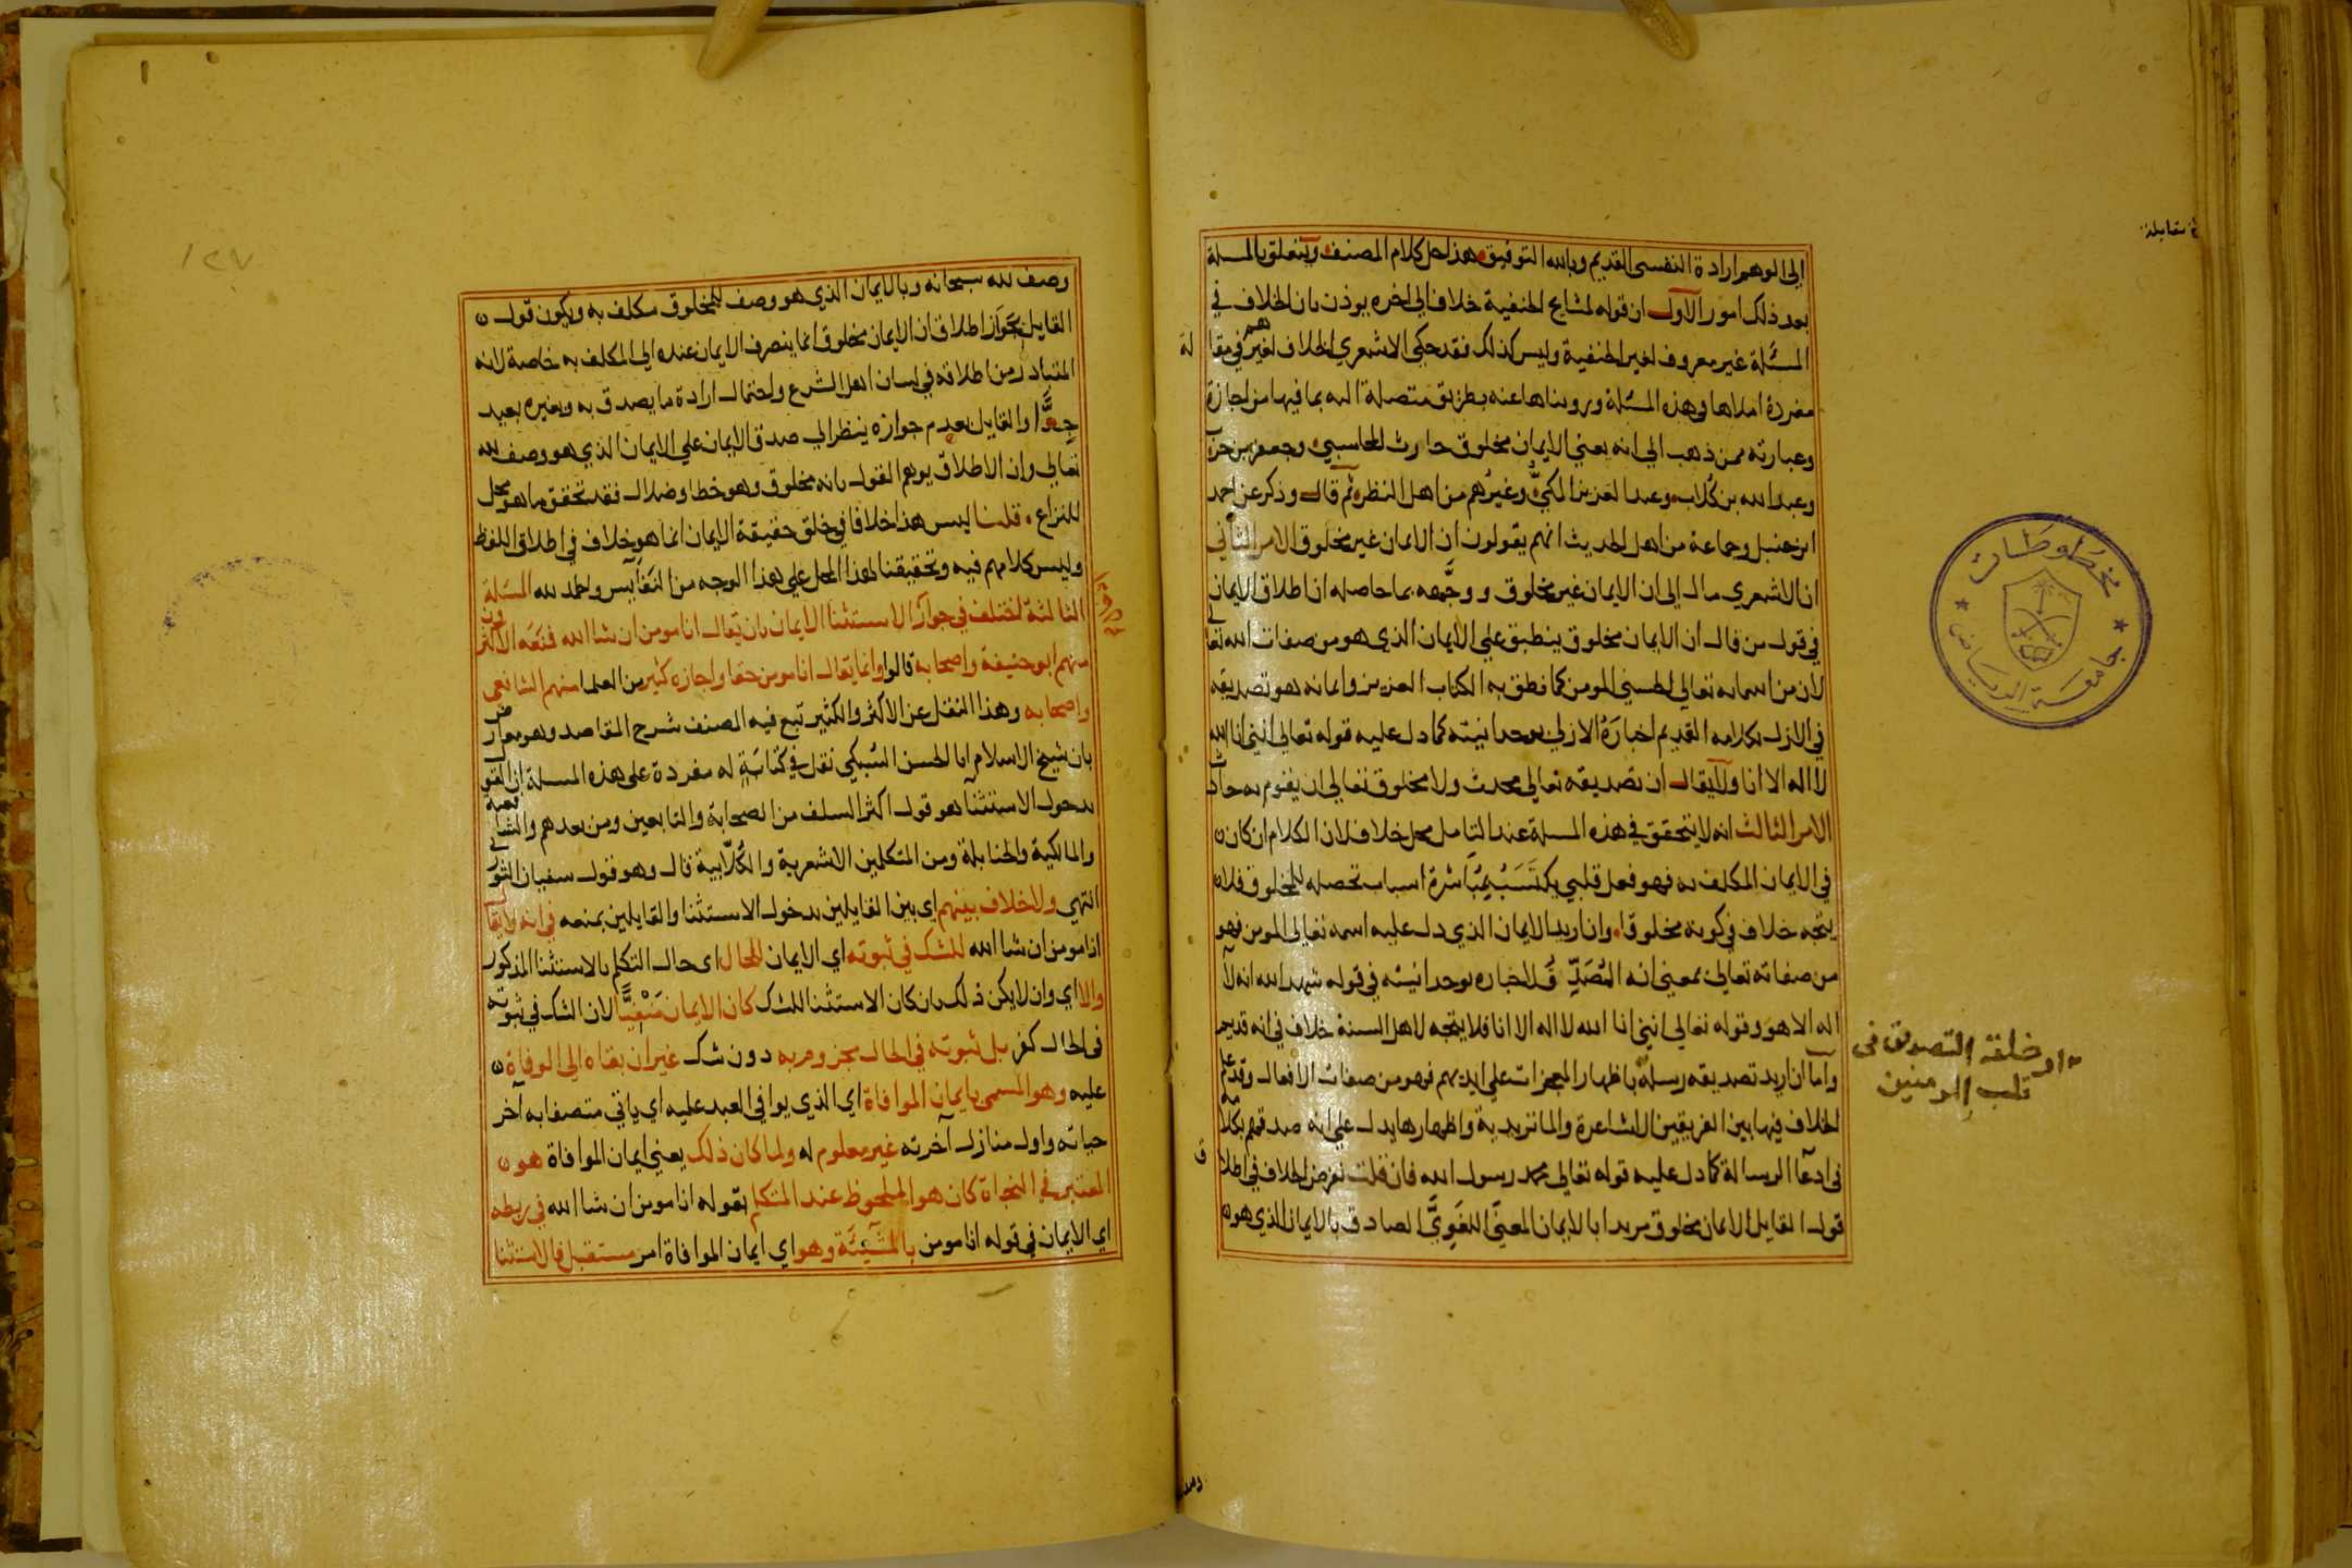 الى الوهم ارادة النفسى القديم وبالله التوفيق هذا حل كلام المصنف ويتعلق بالمسلة
بعد ذلك امور الاول ان قوله لمشايخ الحنفية خلاف الى اخره يوذن بان الخلاف في
المسئلة غير معروف لغير الحنفية وليس كذلك فقد حكى الاشعري الخلاف لغيرهم في مقالة
مفردة املاها في هذه المسئلة ورويناها عنه بطريق متصلة اليه بما فيها من اجازة
وعبارته ممن ذهب الى انه يعني الايمان مخلوق حارث المحاسبي وجعفر بن حرب
وعبد الله بن كلاب وعبد العزيز المكيّ وغيرُهم من اهل النظر ثم قال وذكر عن احمد
ابن حنبل وجماعة من اهل الحديث انهم يقولون ان الايمان غير مخلوق الامر الثاني
ان الاشعري مال الى ان الايمان غير مخلوق ووجَّهه بما حاصله ان اطلاق الايمان
في قول من قال ان الايمان مخلوق ينطبق علي الايمان الذي هو من صفات الله تعالى
لان من اسمايه تعالي الحسني المومن كما نطق به الكتاب العزيز وايمانه هو تصديقه
في الازل بكلامه القديم اخبارَهُ الازلي بوحدانيته كما دل عليه قوله تعالي انني انا الله
لا اله الا انا ولا يقال ان تصديقه تعالي محدث ولا مخلوق تعالي ان يقوم به حادث
الامر الثالث انه لا يتحقق في هذه المسلة عند التامل محل خلاف لان الكلام ان كان
في الايمان المكلف به فهو فعل قلبي يكتَسَبُ بمُبَاشرة اسباب تحصله للمخلوق فلا
يتجه خلاف في كونه مخلوقا وان اريد الايمان الذي دل عليه اسمه تعالى المومن فهو
من صفاته تعالى بمعني انه المُصَدِّق لاخباره بوحدانيته في قوله شهد الله انه لا
اله الا هو وقوله تعالي انني انا الله لا اله الا انا فلا يتجه لاهل السنة خلاف في انه قديم
واما ان اريد تصديقه رسله باظهار المعجزات علي ايديهم فهو من صفات الافعال وقد علم
الخلاف فيها بين الفريقين الاشاعرة والماتريدية واظهارها يدل علي انه صدقهم بكلامه
في ادعآ الرسالة كما دل عليه قوله تعالي محمد رسول الله فان قلت نفرض الخلاف في اطلاق
قول القايل الايمان مخلوق مريدا بالايمان المعنَى اللغَوِيَّ الصادق بالايمان الذي هو
او خلقه التصديق في
قلب المومنين
مقابلة
مخطوطات
جامعة الرياض
١٢٧
وصف لله سبحانه وبالايمان الذي هو وصف للمخلوق مكلف به ويكون قول
القايل بجَوَاز اطلاق ان الايمان مخلوق انما ينصرف الايمان عنده الي المكلف به خاصة لانه
المتبادر من اطلاقه في لسان اهل الشرع واحتمال ارادة ما يصدق به وبغيره بعيد
جدًّا والقايل بعدم جوازه ينظر الي صدق الايمان علي الايمان الذي هو وصف لله
تعالي وان الاطلاق يوهم القول بانه مخلوق وهو خطا وضلال فقد تحقق ما هو محل
للنزاع قلنا ليس هذا خلافا في خلق حقيقة الايمان انما هو خلاف في اطلاق اللفظ
وليس كلامهم فيه وتحقيقنا لهذا المحل علي هذا الوجه من النفايس والحمد لله المسئلة
الثالثة اختلف في جواز الاستثنا الايمان بان يقال انا مومن ان شا الله فمنعه الاكثرون
منهم ابو حنيفة واصحابه قالوا وانما يقال انا مومن حقا واجازه كثير من العلما منهم الشافعي
واصحابه وهذا النقل عن الاكثر والكثير تبع فيه المصنف شرح المقاصد وهو معارض
بان شيخ الاسلام ابا الحسن السُبكي نقل في كتابَةٍ له مفردة على هذه المسلة ان القول
بدخول الاستثنا هو قول اكثر السلف من الصحابة والتابعين ومن بعدهم والشافعية
والمالكية والحنابلة ومن المتكلمين الاشعرية والكُلّابية قال وهو قول سفيان الثوري
انتهي ولا خلاف بينهم اي بين القايلين بدخول الاستثنا والقايلين بمنعه في انه لا يقال
انا مومن ان شا الله للشك في ثبوته اي الايمان للحال اى حال التكلم بالاستثنا المذكور
والا اي وان لا يكن ذلك بان كان الاستثنا للشك كان الايمان مَنْفِيًّا لان الشك في ثبوته
في الحال كفر بل ثبوته في الحال مجزوم به دون شك غير ان بقاه الى الوفاة
عليه وهو المسمي بايمان الموافاة اي الذي يوافي العبد عليه اي ياتي متصفا به آخر
حياته واول منازل آخرته غير معلوم له ولما كان ذلك يعني ايمان الموافاة هو
المعتبر في النجاة كان هو الملحوظ عند المتكلم بقوله انا مومن ان شا الله في ربطه
اي الايمان في قوله انا مومن بالمشِيئَة وهو اي ايمان الموافاة امر مستقبل فالاستثنا